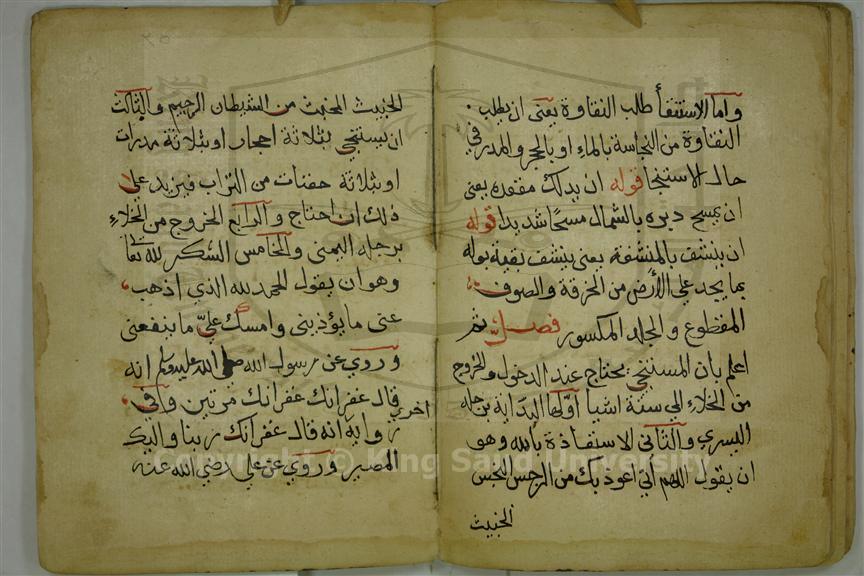 واما الاستنقأ طالب النقاوة يعني ان يطلب
النقاوة من النجاسة بالماء او بالحجر والمدر في
حال الاستنجا قوله ان يدلك مقعده يعني
ان يمسح دبره بالشمال مسحا شديدا قوله
ان ينشف بالمنشفة يعني ينشف بقية بوله
بما يجد علي الأرض من الخرقة والصوف
المقطوع والجلد المكسور فصل ثم
اعلم بان المستنجي يحتاج عند الدخول والخروج
من الخلاء الي ستة اشيا اولها البداية برجله
اليسري والثاني الاستفاذة بالله وهو
ان يقول اللهم أني اعوذ بك من الرجس النجس
الخبيث
الخبيث المخبث من الشيطان الرجيم والثالث
ان يستنجي بثلاثة احجار او ثلاثة مدرات
او بثلاثة حفنات من التراب فيزيد علي
ذلك ان احتاج والرابع الخروج من الخلاء
برجله اليمني والخامس الشكر لله تعا
وهو ان يقول الحمد لله الذي اذهب
عني ما يؤذيني وامسك عليّ ما ينفعني
وروي عن رسول الله صلي الله عليه وسلم انه
قال غفرانك غفرانك مرتين وفي
اخري
رواية انه قال غفرانك ربنا واليك
المصير وروي عن علي رضي الله عنه
Copyright © King Saud University